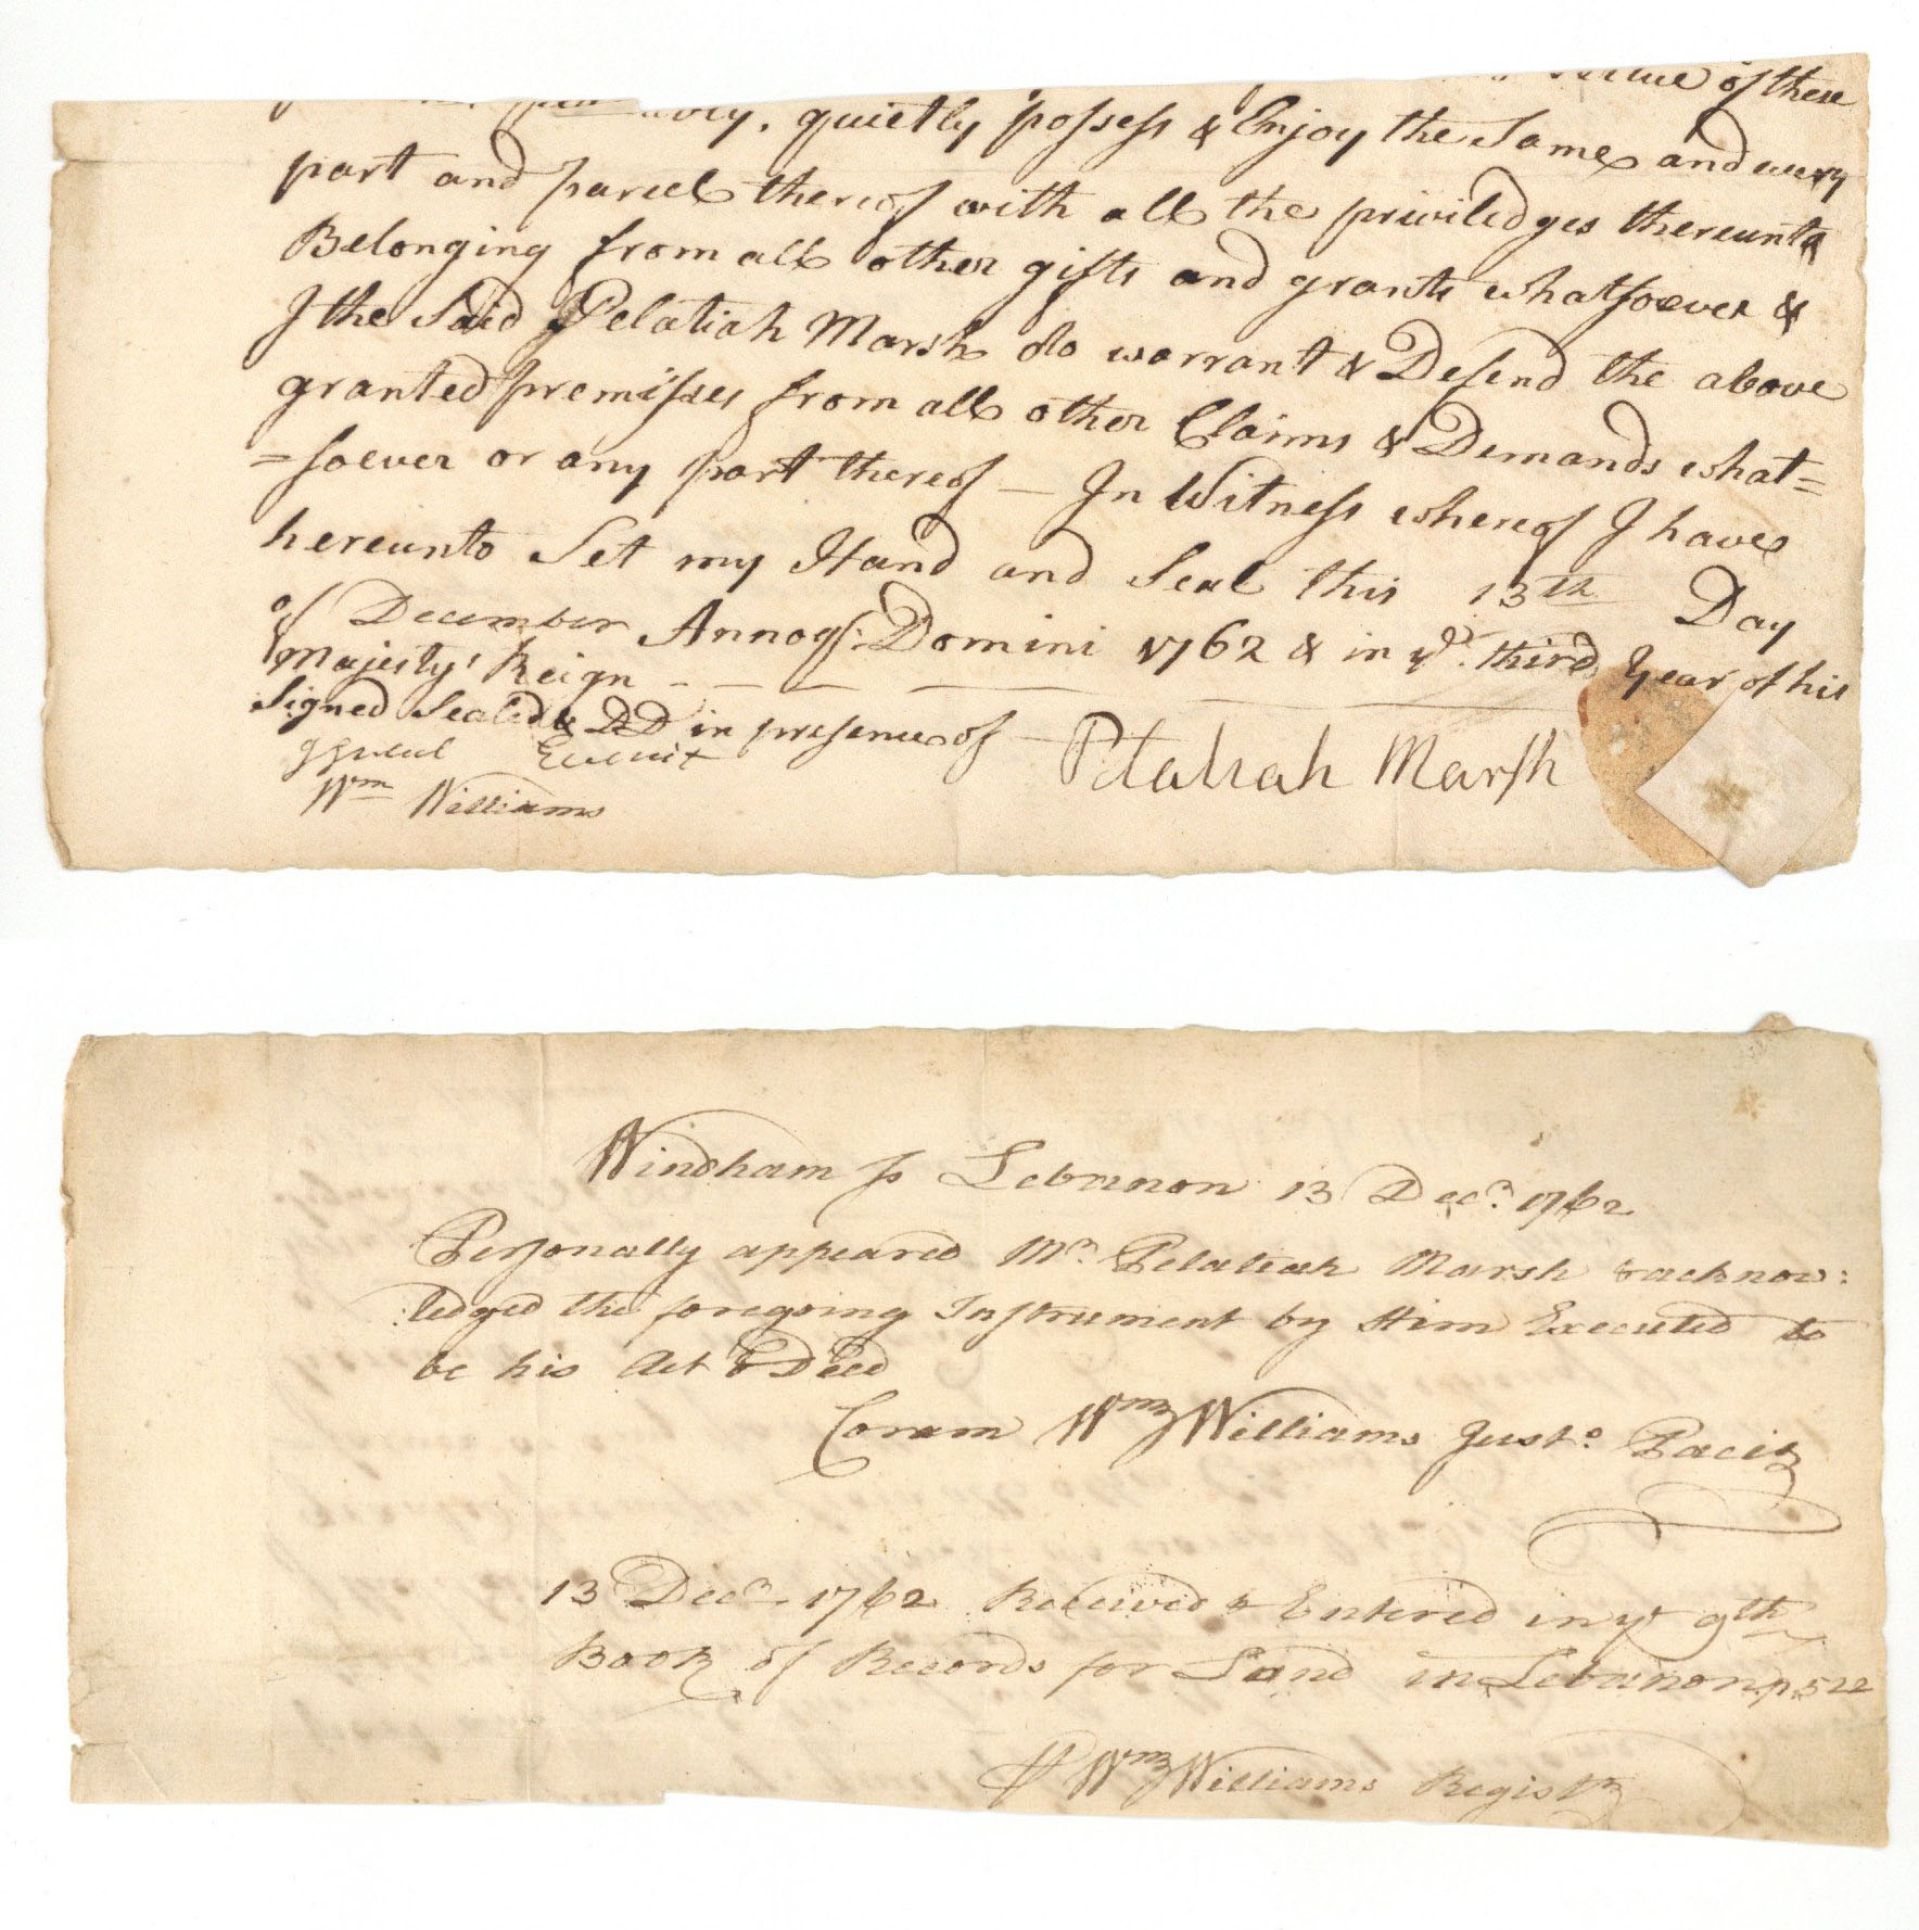 of these
quietly possess & Enjoy the Same and every
part and parcel thereof with all the priviledges thereunto
Belonging from all other gifts and grants whatsoever &
I the Said Pelatiah Marsh do warrant & Defend the above
granted premisses from all other Claims & Demands what=
=soever or any part thereof — In Witness whereof I have
hereunto Set my Hand and Seal this 13th Day
of December Annoqe: Domini 1762 & in ye. third Year of his
Majesty' Reign - - - —
Signed Sealed & DD in presence of —
Pelatiah Marsh
Wm Williams
Windham ss Lebanon 13 Decr. 1762
Personally appeared Mr. Pelatiah Marsh & acknow:
:ledged the foregoing Instrument by Him Executed to
be his Act & Deed
Coram Wm Williams Just: Pacis
13 Decr. 1762 Received & Entered in ye 9th
Book of Records for Land in Lebanon p. 522
P Wm Williams Registr